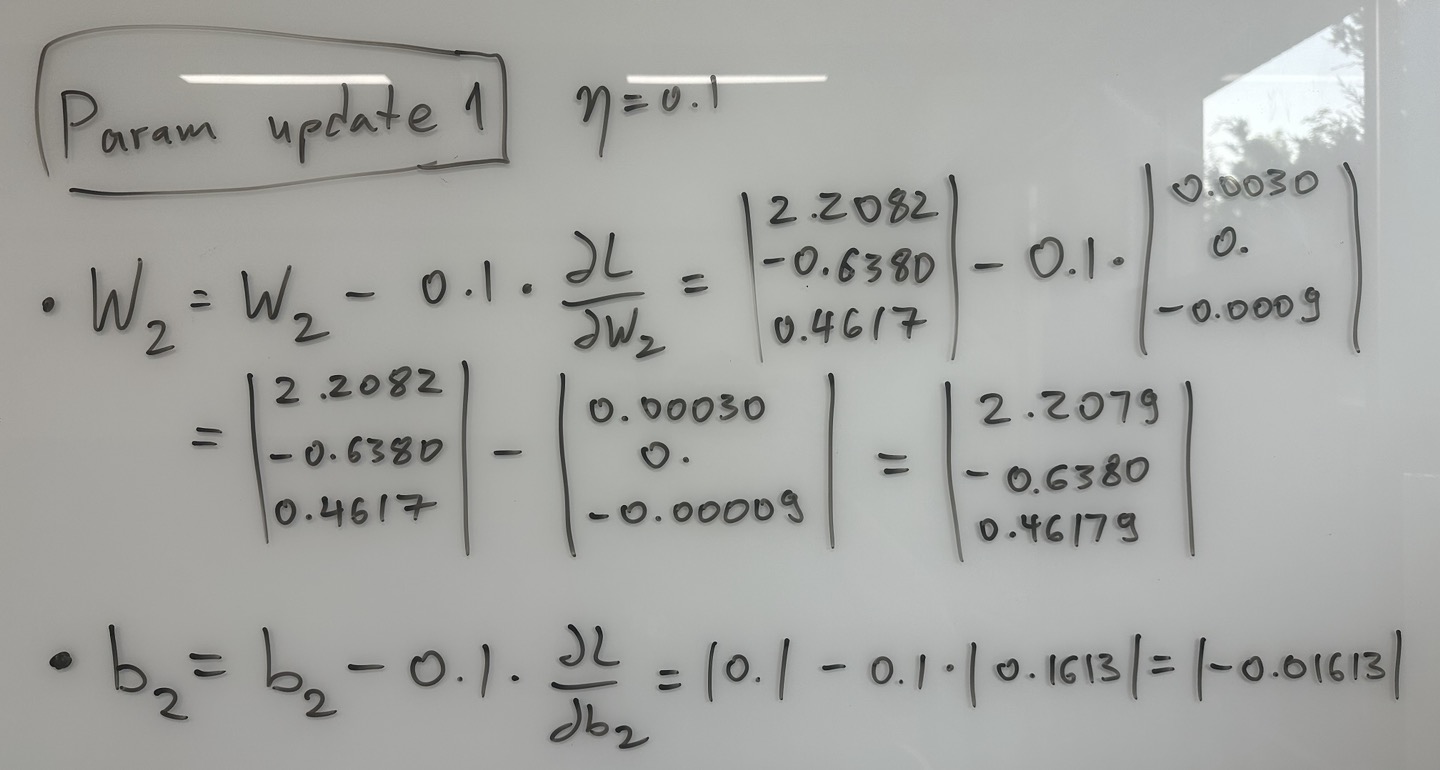 Param update 1 η=0.1
• W₂ = W₂ - 0.1 · ∂L/∂W₂ = |2.2082 -0.6380 0.4617| - 0.1 · |0.0030 0. -0.0009|
= |2.2082 -0.6380 0.4617| - |0.00030 0. -0.00009| = |2.2079 -0.6380 0.46179|
• b₂ = b₂ - 0.1 · ∂L/∂b₂ = |0.| - 0.1 · |0.1613| = |-0.01613|